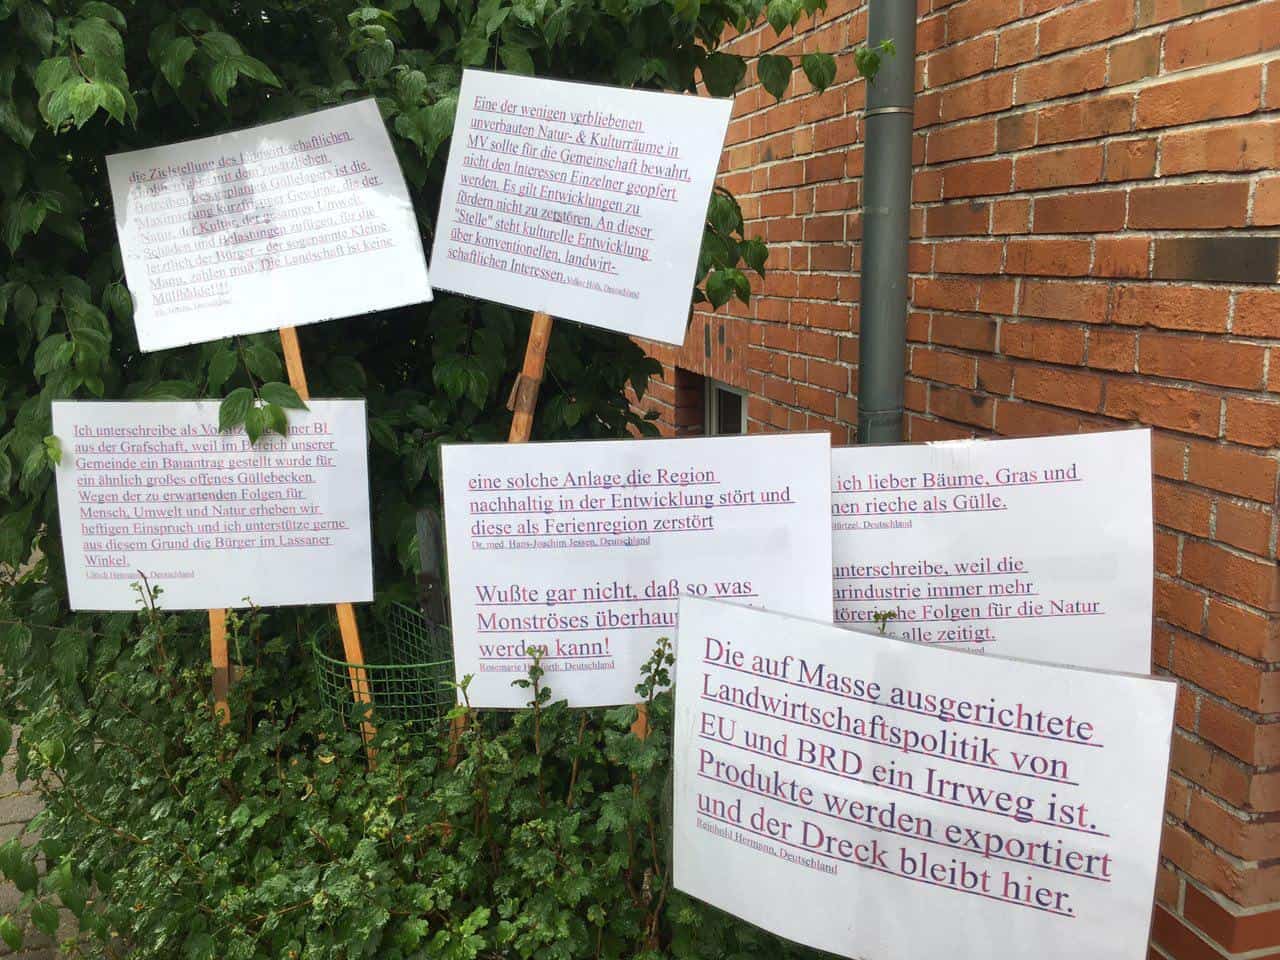 die Zielstellung des landwirtschaftlichen
mit dem zusätzlichen
Betreiben des geplanten Güllelagers ist die
Maximierung kurzfristiger Gewinne, die der
Natur, der Kultur, der gesamten Umwelt
Schäden und Belastungen zufügen, für die
letztlich der Bürger - der sogenannte Kleine
Mann, zahlen muß. Die Landschaft ist keine
Müllhalde!!!!
Eine der wenigen verbliebenen
unverbauten Natur- & Kulturräume in
MV sollte für die Gemeinschaft bewahrt,
nicht den Interessen Einzelner geopfert
werden. Es gilt Entwicklungen zu
fördern nicht zu zerstören. An dieser
"Stelle" steht kulturelle Entwicklung
über konventionellen, landwirt-
schaftlichen Interessen. Volker Höls, Deutschland
Ich unterschreibe als einer BI
aus der Grafschaft, weil im Bereich unserer
Gemeinde ein Bauantrag gestellt wurde für
ein ähnlich großes offenes Güllebecken.
Wegen der zu erwartenden Folgen für
Mensch, Umwelt und Natur erheben wir
heftigen Einspruch und ich unterstütze gerne
aus diesem Grund die Bürger im Lassaner
Winkel.
Ulrich Deutschland
eine solche Anlage die Region
nachhaltig in der Entwicklung stört und
diese als Ferienregion zerstört
Dr. med. Hans-Joachim Jessen, Deutschland
Wußte gar nicht, daß so was
Monströses überhaupt
werden kann!
Rosemarie Deutschland
ich lieber Bäume, Gras und
en rieche als Gülle.
Deutschland
unterschreibe, weil die
rarindustrie immer mehr
törerische Folgen für die Natur
alle zeitigt.
Die auf Masse ausgerichtete
Landwirtschaftspolitik von
EU und BRD ein Irrweg ist.
Produkte werden exportiert
und der Dreck bleibt hier.
Reinhold Hermann, Deutschland